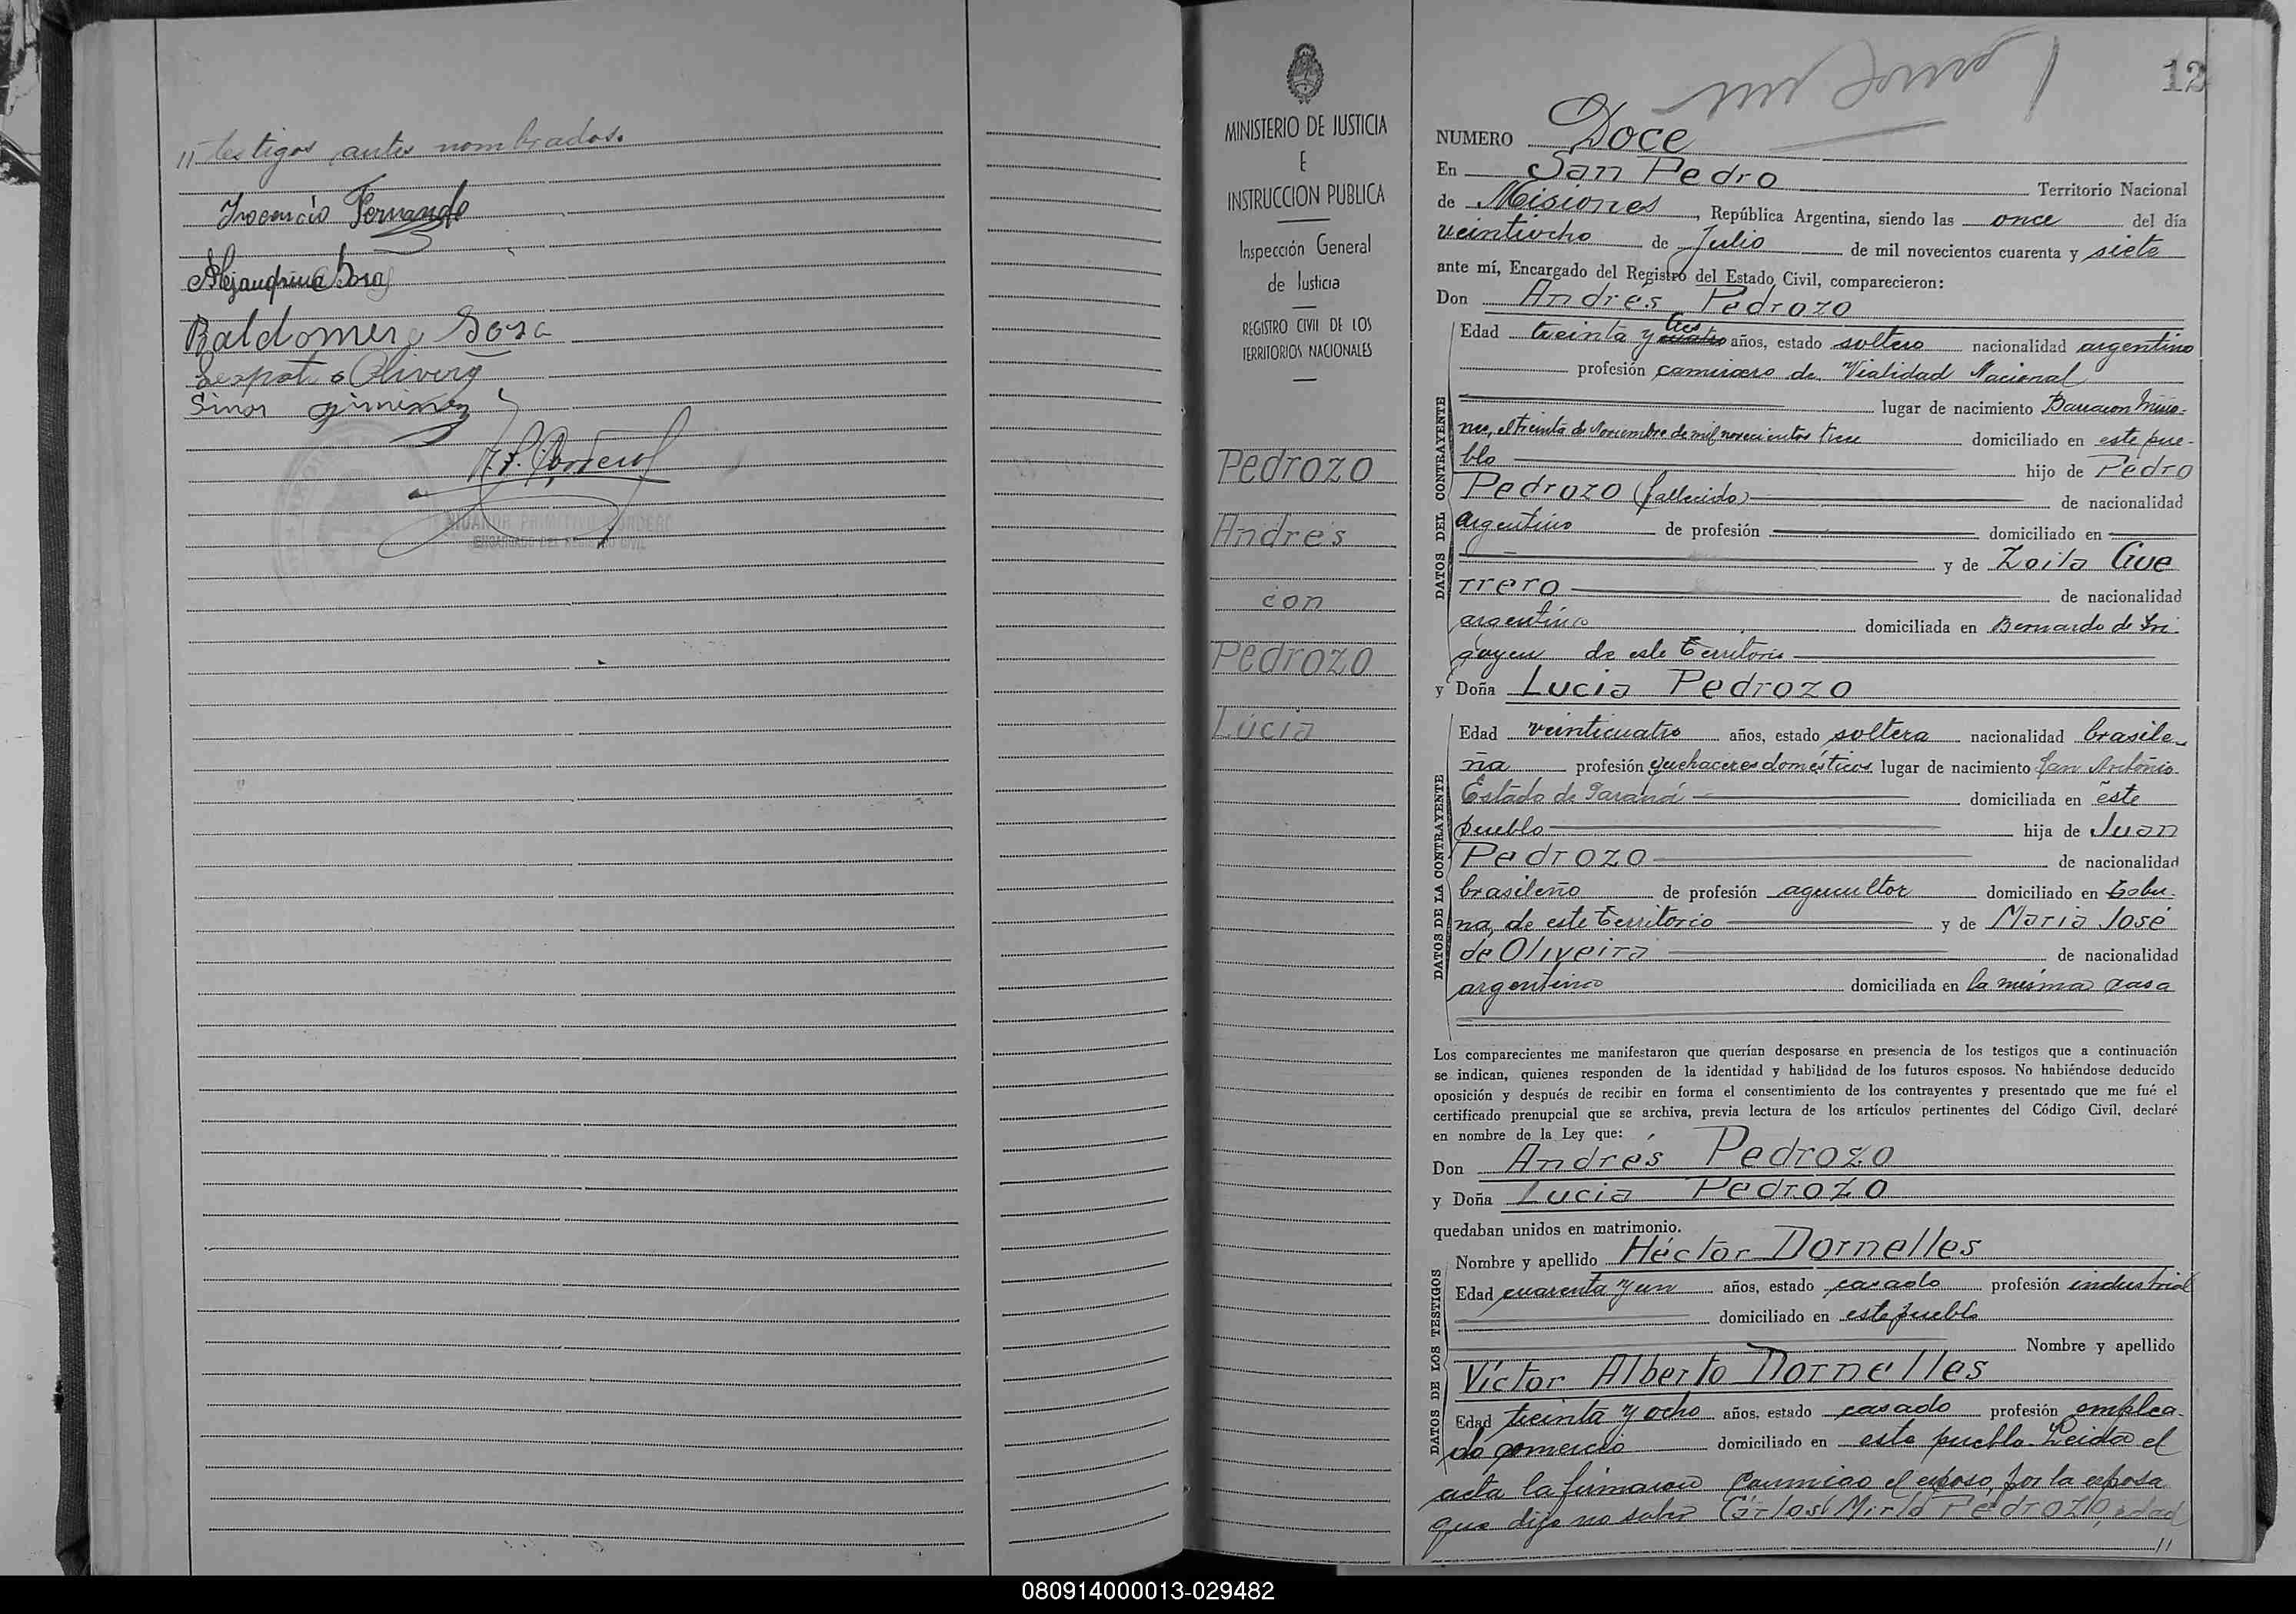 " testigos antes nombrados.
Inocencio Fernando
Alejandrina Sosa
Baldomero Sosa
Olivera
Simon Gimenez
NICANOR PRIMITIVO CORDERO
ENCARGADO DEL REGISTRO CIVIL
MINISTERIO DE JUSTICIA
E
INSTRUCCION PUBLICA
Inspección General
de Justicia
REGISTRO CIVIL DE LOS
TERRITORIOS NACIONALES
Pedrozo
Andrés
con
Pedrozo
Lucia
12
NUMERO Doce
En San Pedro Territorio Nacional
de Misiones, República Argentina, siendo las once del día
veintiocho de Julio de mil novecientos cuarenta y siete
ante mí, Encargado del Registro del Estado Civil, comparecieron:
Don Andres Pedrozo
DATOS DEL CONTRAYENTE
Edad treinta y tres cuatro años, estado soltero nacionalidad argentino
profesión caminero de Vialidad Nacional
lugar de nacimiento Barracon Misio-
nes, el treinta de Noviembre de mil novecientos trece domiciliado en este pue-
blo hijo de Pedro
Pedrozo (fallecido) de nacionalidad
argentino de profesión domiciliado en
y de Zoila Gue
rrero de nacionalidad
argentina domiciliada en Bernardo de Iri-
goyen de este Territorio
y Doña Lucia Pedrozo
DATOS DE LA CONTRAYENTE
Edad veinticuatro años, estado soltera nacionalidad brasile-
ña profesión quehaceres domésticos lugar de nacimiento San Antonio
Estado de Paraná domiciliada en este
pueblo hija de Juan
Pedrozo de nacionalidad
brasileño de profesión agricultor domiciliado en Tobu-
na, de este territorio y de Maria José
de Oliveira de nacionalidad
argentina domiciliada en la misma casa
Los comparecientes me manifestaron que querían desposarse en presencia de los testigos que a continuación
se indican, quienes responden de la identidad y habilidad de los futuros esposos. No habiéndose deducido
oposición y después de recibir en forma el consentimiento de los contrayentes y presentado que me fué el
certificado prenupcial que se archiva, previa lectura de los artículos pertinentes del Código Civil, declaré
en nombre de la Ley que:
Don Andrés Pedrozo
y Doña Lucia Pedrozo
quedaban unidos en matrimonio.
DATOS DE LOS TESTIGOS
Nombre y apellido Héctor Dornelles
Edad cuarenta y un años, estado casado profesión industrial
domiciliado en este pueblo
Nombre y apellido
Víctor Alberto Dornelles
Edad treinta y ocho años, estado casado profesión emplea-
do comercio domiciliado en este pueblo Leida el
acta la firmaron conmigo el esposo, por la esposa
que dijo no saber Carlos Mirto Pedrozo, edad
"
080914000013-029482